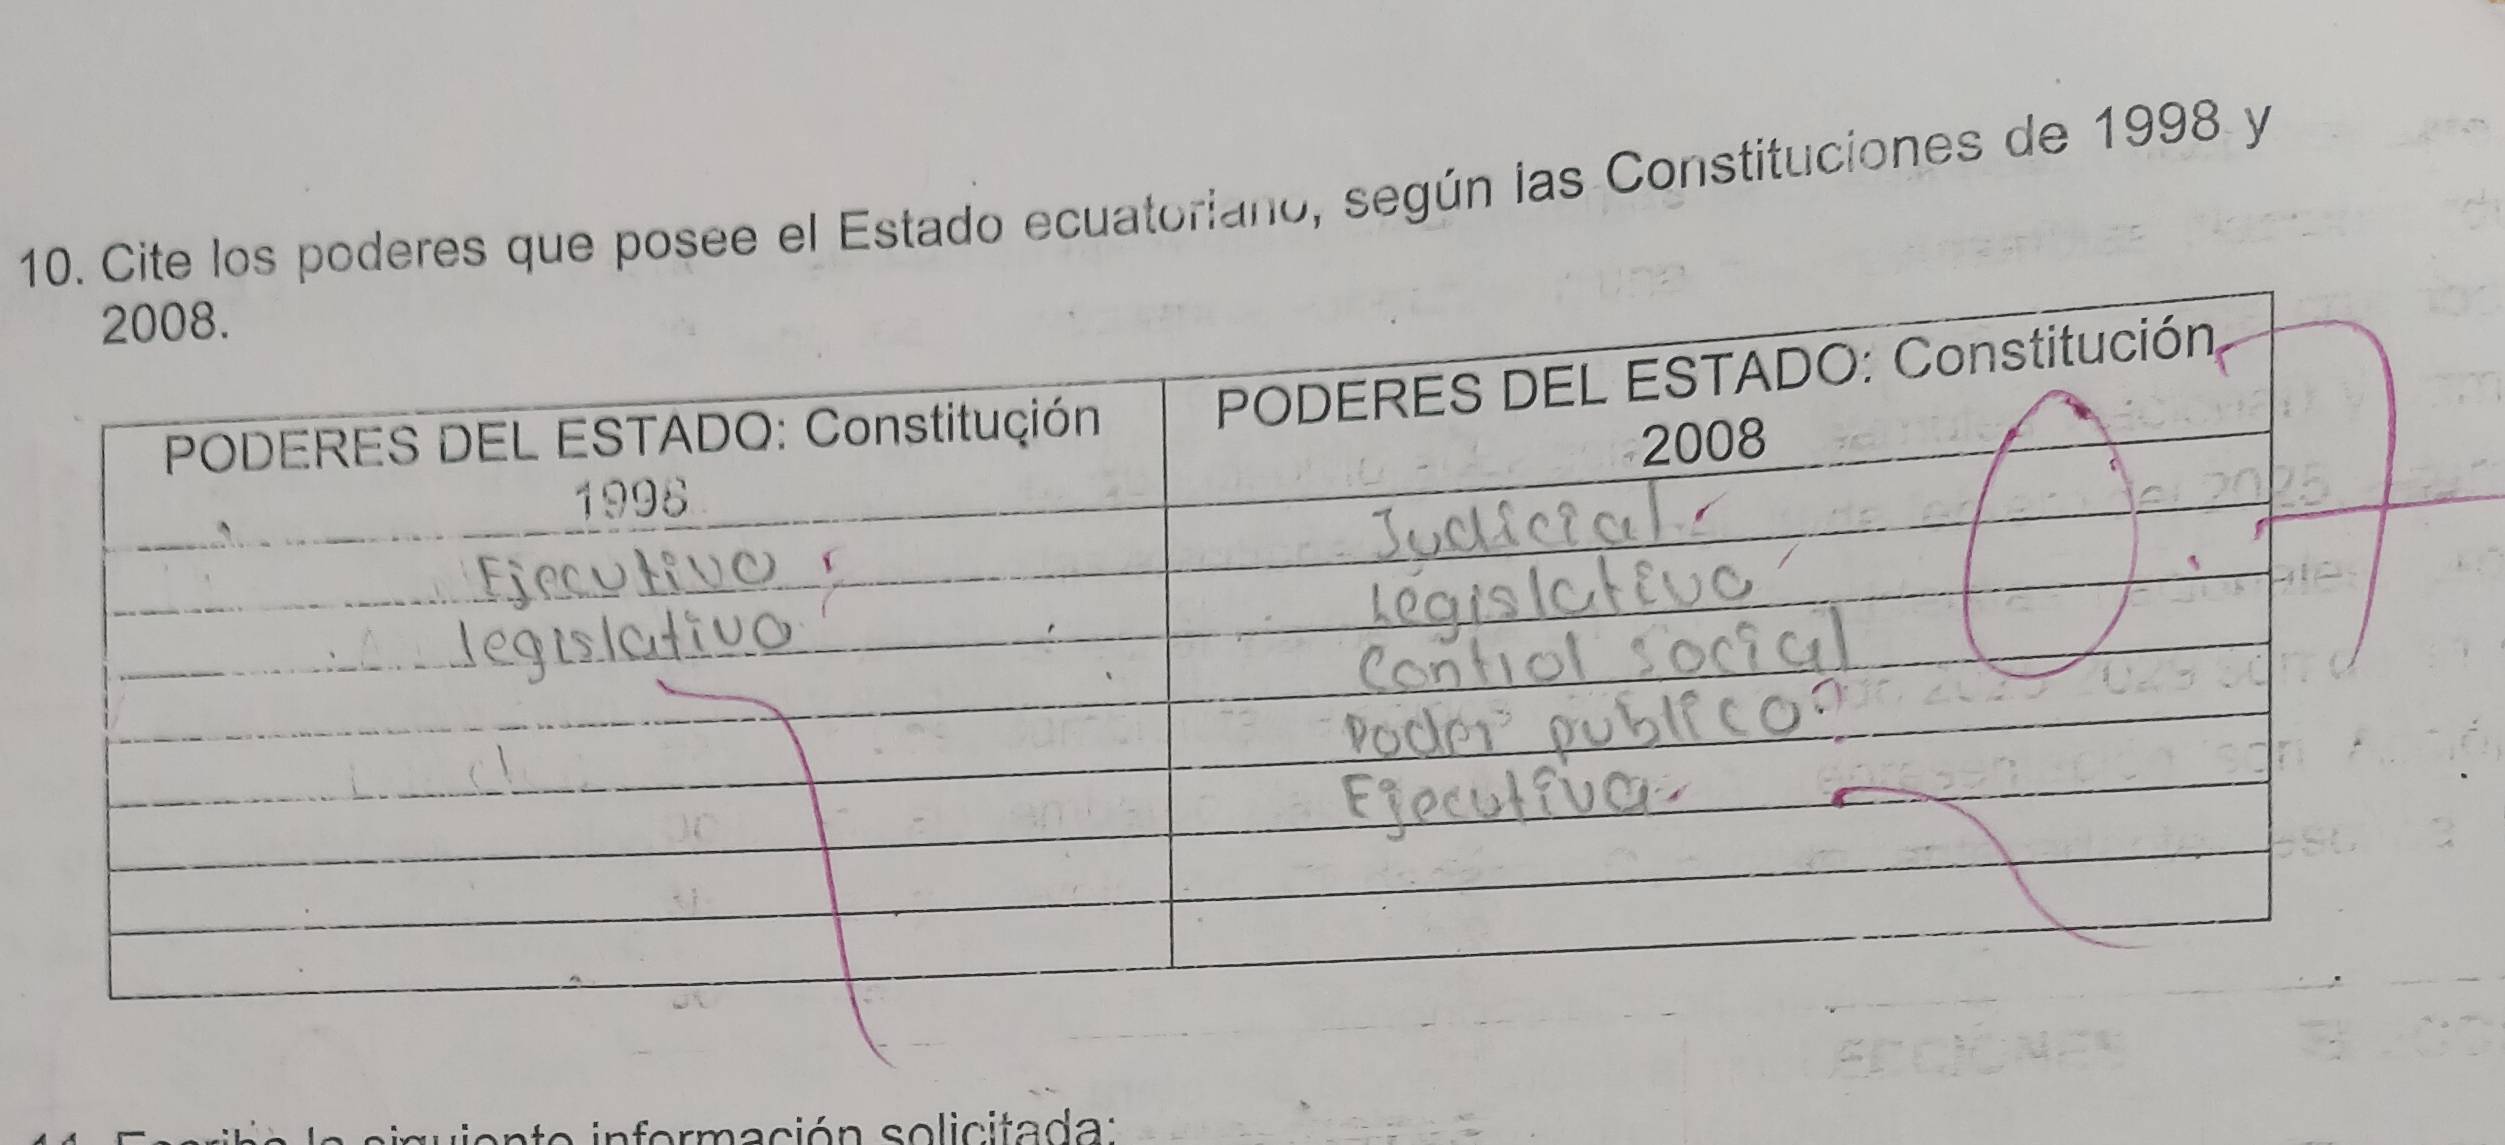 10. Cite los poderes que posee el Estado ecuatoriano, según las Constituciones de 1998 y
2008.
PODERES DEL ESTADO: Constitución
1998
PODERES DEL ESTADO: Constitución
2008
Ejecutivo
legislativo
Judicial
Legislativo
Control social
Poder publico
Ejecutiva
información solicitada: